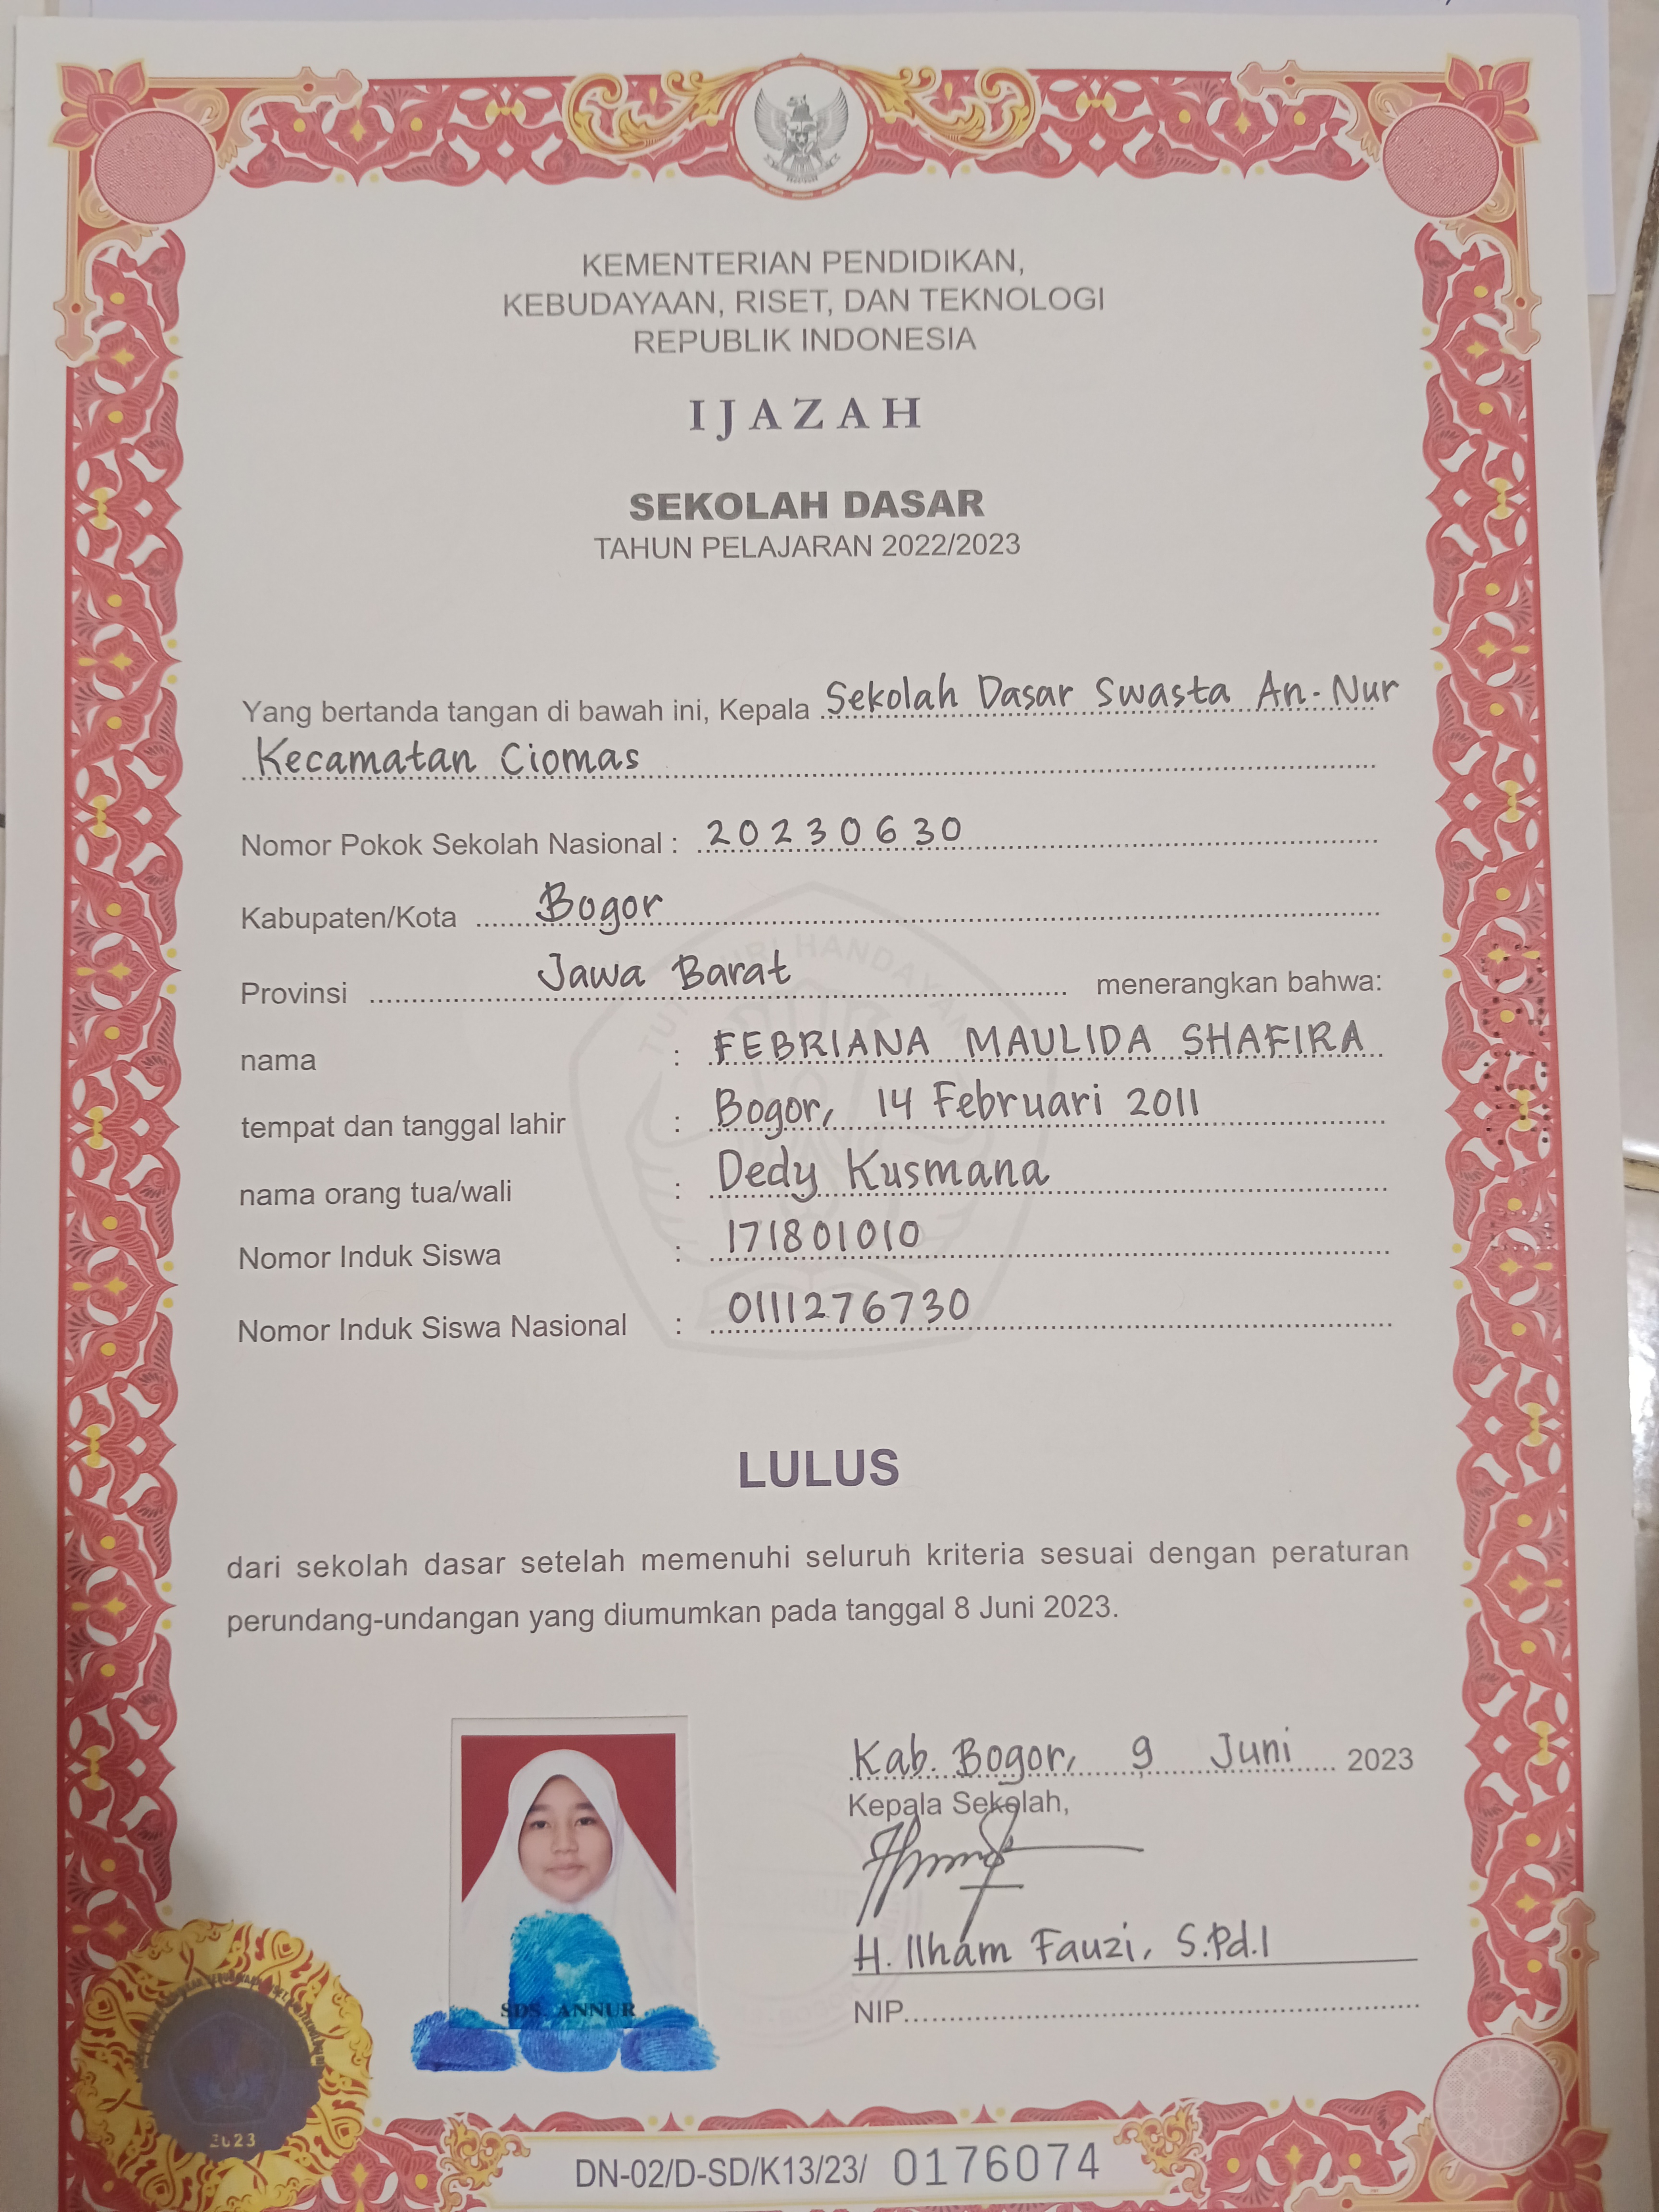 KEMENTERIAN PENDIDIKAN,
KEBUDAYAAN, RISET, DAN TEKNOLOGI
REPUBLIK INDONESIA
IJAZAH
SEKOLAH DASAR
TAHUN PELAJARAN 2022/2023
Yang bertanda tangan di bawah ini, Kepala Sekolah Dasar Swasta An-Nur
Kecamatan Ciomas
Nomor Pokok Sekolah Nasional : 20230630
Kabupaten/Kota Bogor
Provinsi Jawa Barat menerangkan bahwa:
nama : FEBRIANA MAULIDA SHAFIRA
tempat dan tanggal lahir : Bogor, 14 Februari 2011
nama orang tua/wali : Dedy Kusmana
Nomor Induk Siswa : 171801010
Nomor Induk Siswa Nasional : 0111276730
LULUS
dari sekolah dasar setelah memenuhi seluruh kriteria sesuai dengan peraturan
perundang-undangan yang diumumkan pada tanggal 8 Juni 2023.
Kab. Bogor, 9 Juni 2023
Kepala Sekolah,
H. Ilham Fauzi, S.Pd.I
NIP.
SDS. ANNUR
2023
DN-02/D-SD/K13/23/ 0176074